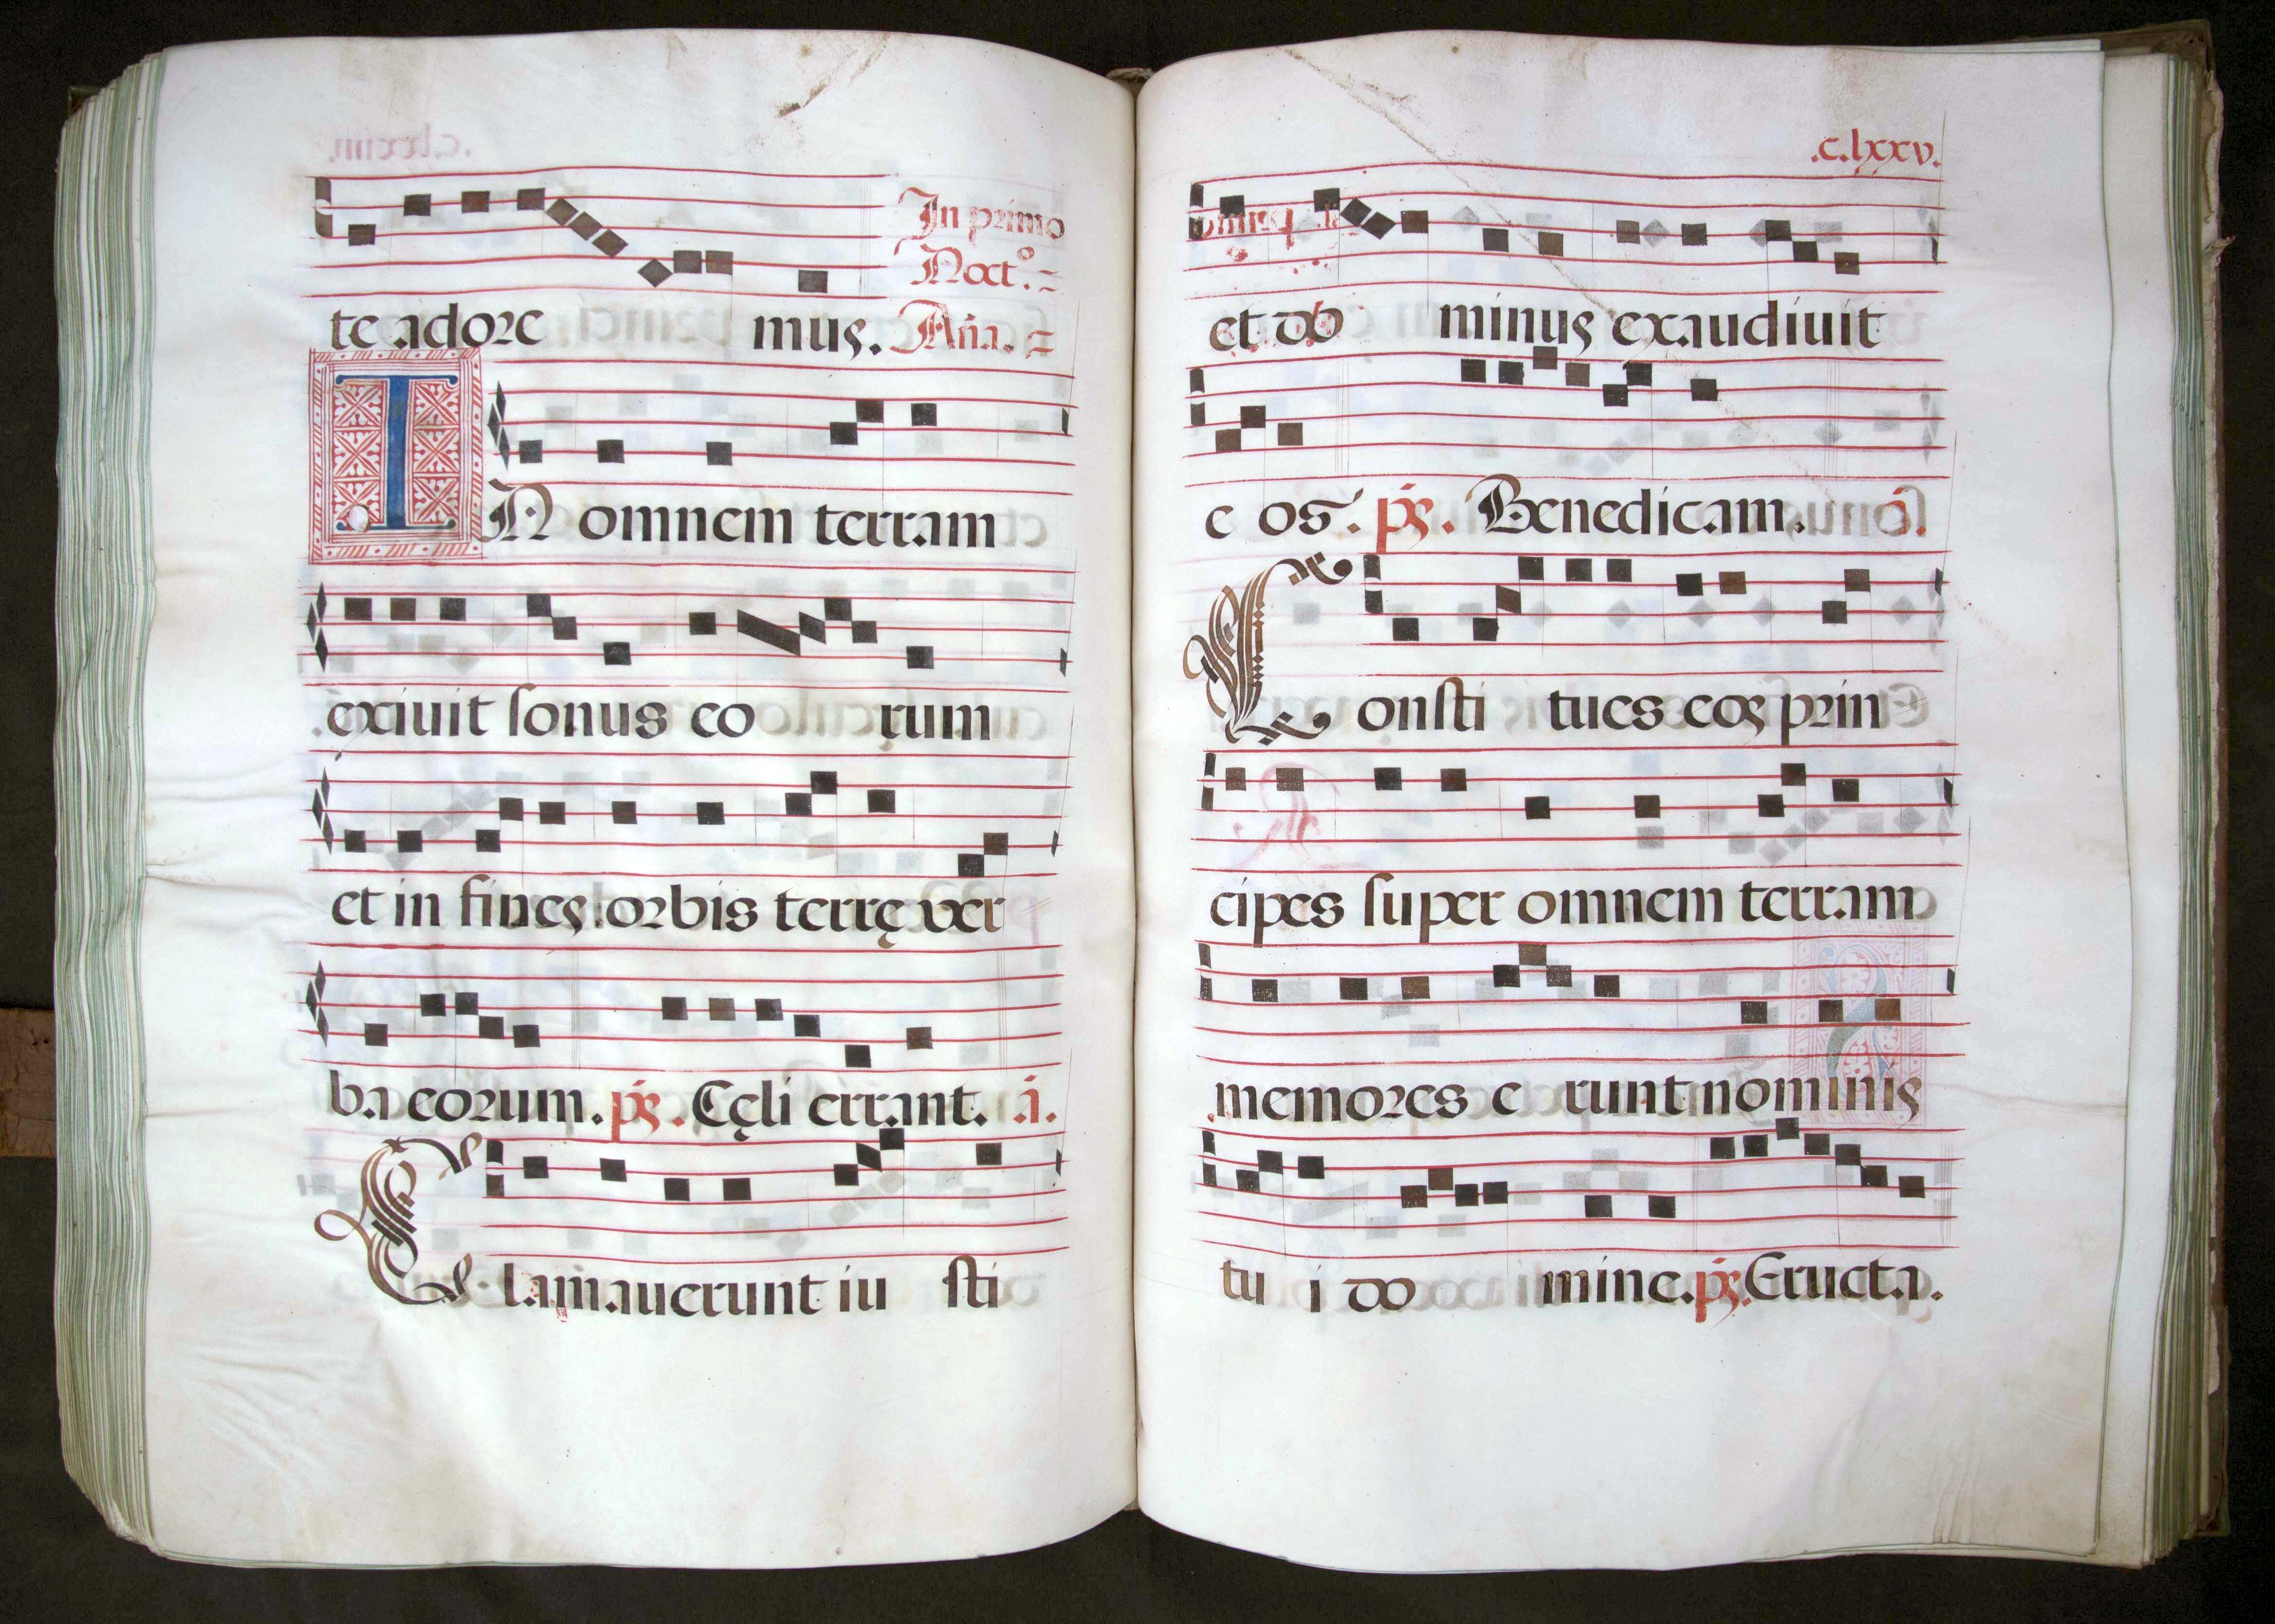 te adore mus. In primo
Noct.º
Aña.
IN omnem terram
exiuit ſonus eo rum
et in fines orbis terrę ver
ba eorum. ps. Cęli errant. ā.
Clamauerunt iu ſti
.c.lxxv.
et do minus exaudiuit
e os. ps. Benedicam. ā.
Conſti tues eos prin
cipes ſuper omnem terram
memores e runt nominis
tu i do mine. ps. Eructa.